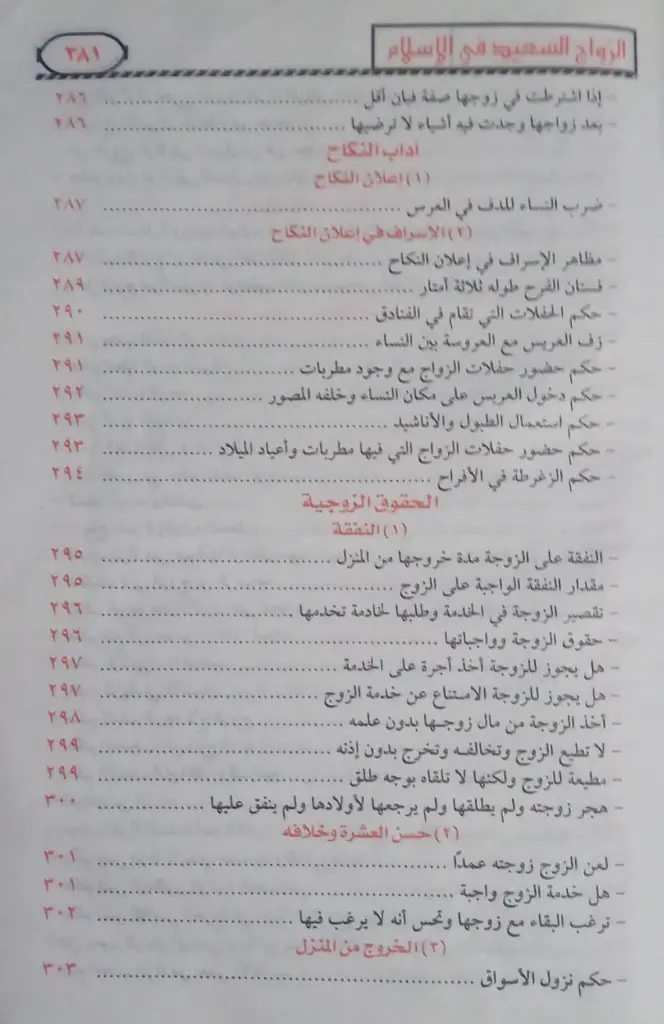 الزواج السعيد في الإسلام ٣٨١
- إذا اشترطت في زوجها صفة فبان أقل .................... ٢٨٦
- بعد زواجها وجدت فيه أشياء لا ترضيها .................... ٢٨٦
آداب النكاح
(١) إعلان النكاح
- ضرب النساء للدف في العرس .................... ٢٨٧
(٢) الإسراف في إعلان النكاح
- مظاهر الإسراف في إعلان النكاح .................... ٢٨٧
- فستان الفرح طوله ثلاثة أمتار .................... ٢٨٩
- حكم الحفلات التي تقام في الفنادق .................... ٢٩٠
- زف العريس مع العروسة بين النساء .................... ٢٩١
- حكم حضور حفلات الزواج مع وجود مطربات .................... ٢٩١
- حكم دخول العريس على مكان النساء وخلفه المصور .................... ٢٩٢
- حكم استعمال الطبول والأناشيد .................... ٢٩٣
- حكم حضور حفلات الزواج التي فيها مطربات وأعياد الميلاد .................... ٢٩٣
- حكم الزغرطة في الأفراح .................... ٢٩٤
الحقوق الزوجية
(١) النفقة
- النفقة على الزوجة مدة خروجها من المنزل .................... ٢٩٥
- مقدار النفقة الواجبة على الزوج .................... ٢٩٥
- تقصير الزوجة في الخدمة وطلبها لخادمة تخدمها .................... ٢٩٦
- حقوق الزوجة وواجباتها .................... ٢٩٦
- هل يجوز للزوجة أخذ أجرة على الخدمة .................... ٢٩٧
- هل يجوز للزوجة الامتناع عن خدمة الزوج .................... ٢٩٧
- أخذ الزوجة من مال زوجها بدون علمه .................... ٢٩٨
- لا تطيع الزوج وتخالفه وتخرج بدون إذنه .................... ٢٩٩
- مطيعة للزوج ولكنها لا تلقاه بوجه طلق .................... ٢٩٩
- هجر زوجته ولم يطلقها ولم يرجعها لأولادها ولم ينفق عليها .................... ٣٠٠
(٢) حسن العشرة وخلافه
- لعن الزوج زوجته عمدًا .................... ٣٠١
- هل خدمة الزوج واجبة .................... ٣٠١
- ترغب البقاء مع زوجها وتحس أنه لا يرغب فيها .................... ٣٠٢
(٣) الخروج من المنزل
- حكم نزول الأسواق .................... ٣٠٣